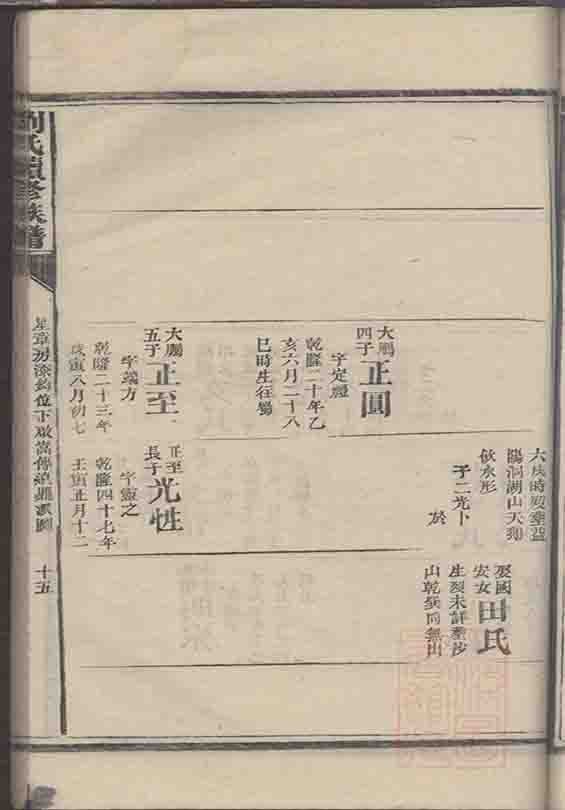 大鵬
四子
正圓
字定禮
乾隆二十年乙
亥六月二十八
巳時生往蜀
大鵬
五子
正至
字端方
乾隆二十三年
戊寅八月初七
六戌時歿葬益
陽洞湖山天獅
飲水形
子二光卜
於
正至
長子
光性
字靈之
乾隆四十七年
壬寅正月十二
娶國
安女
田氏
生歿未詳葬沙
山乾
山
劉氏續修族譜
十五